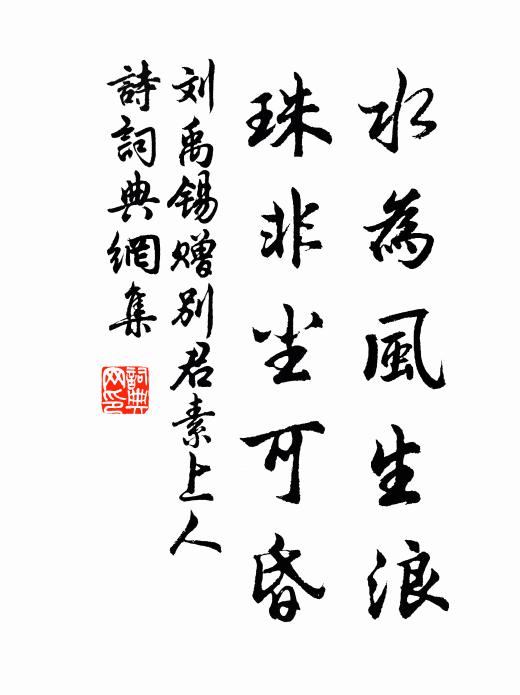 水為風生浪
珠非尘可昏
刘禹锡赠别君素上人
詩詞典網集
詞典
网印